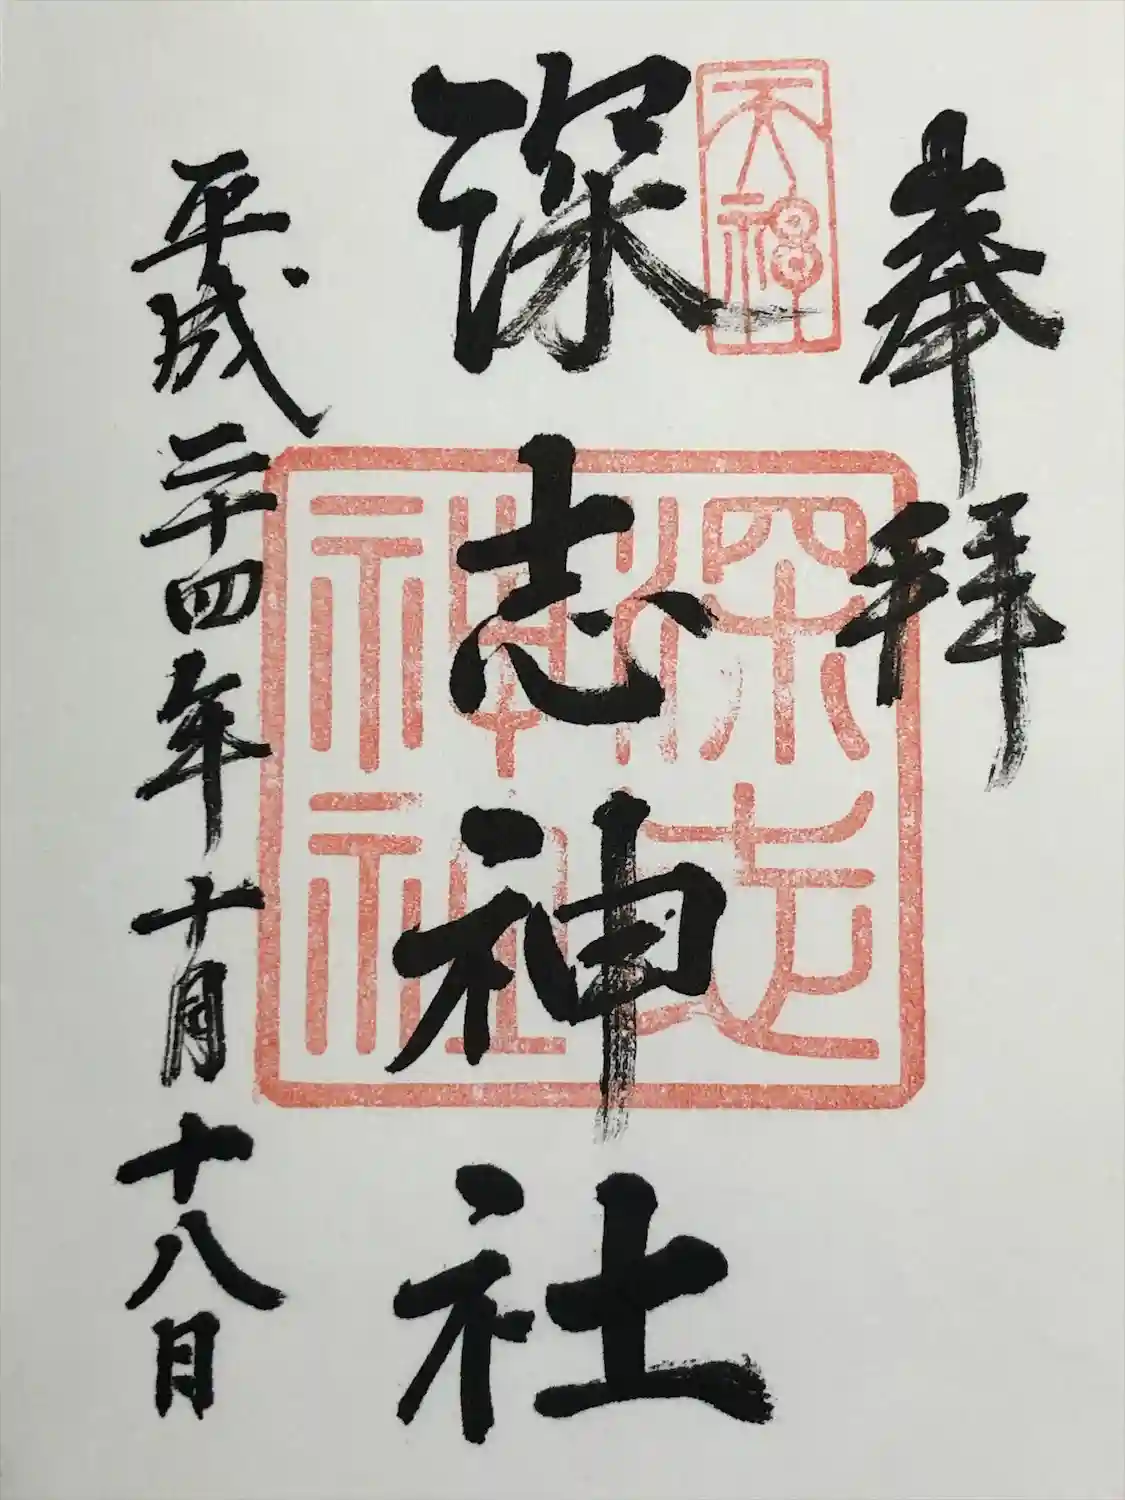 奉拝
天神
深志神社
深志神社
平成二十四年十月十八日